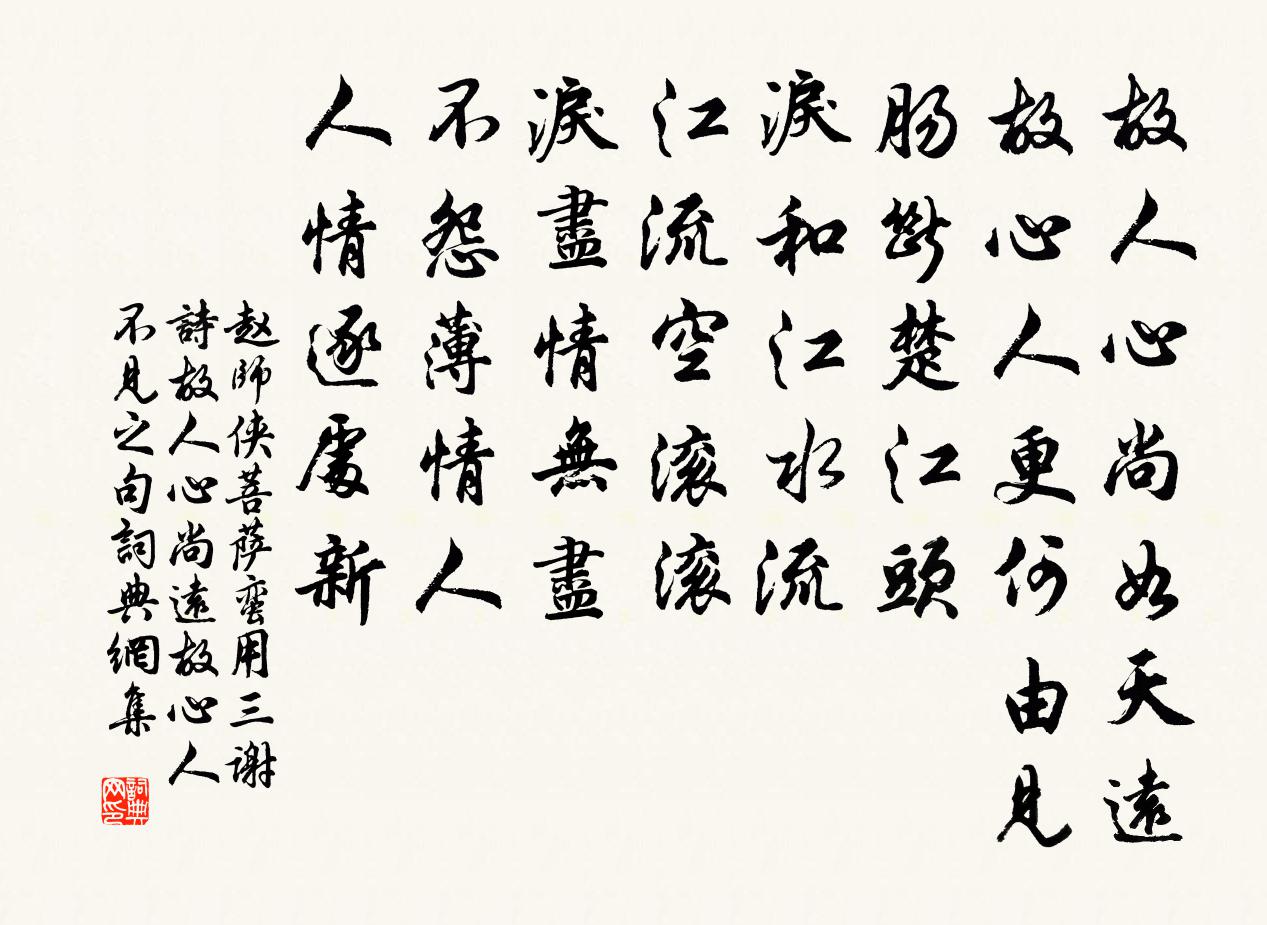 故人心尚如天遠
故心人更何由見
腸斷楚江頭
淚和江水流
江流空滚滚
淚盡情無盡
不怨薄情人
人情逐處新
赵師俠菩薩蠻用三謝
詩故人心尚遠故心人
不見之句詞典網集
詞典
网印